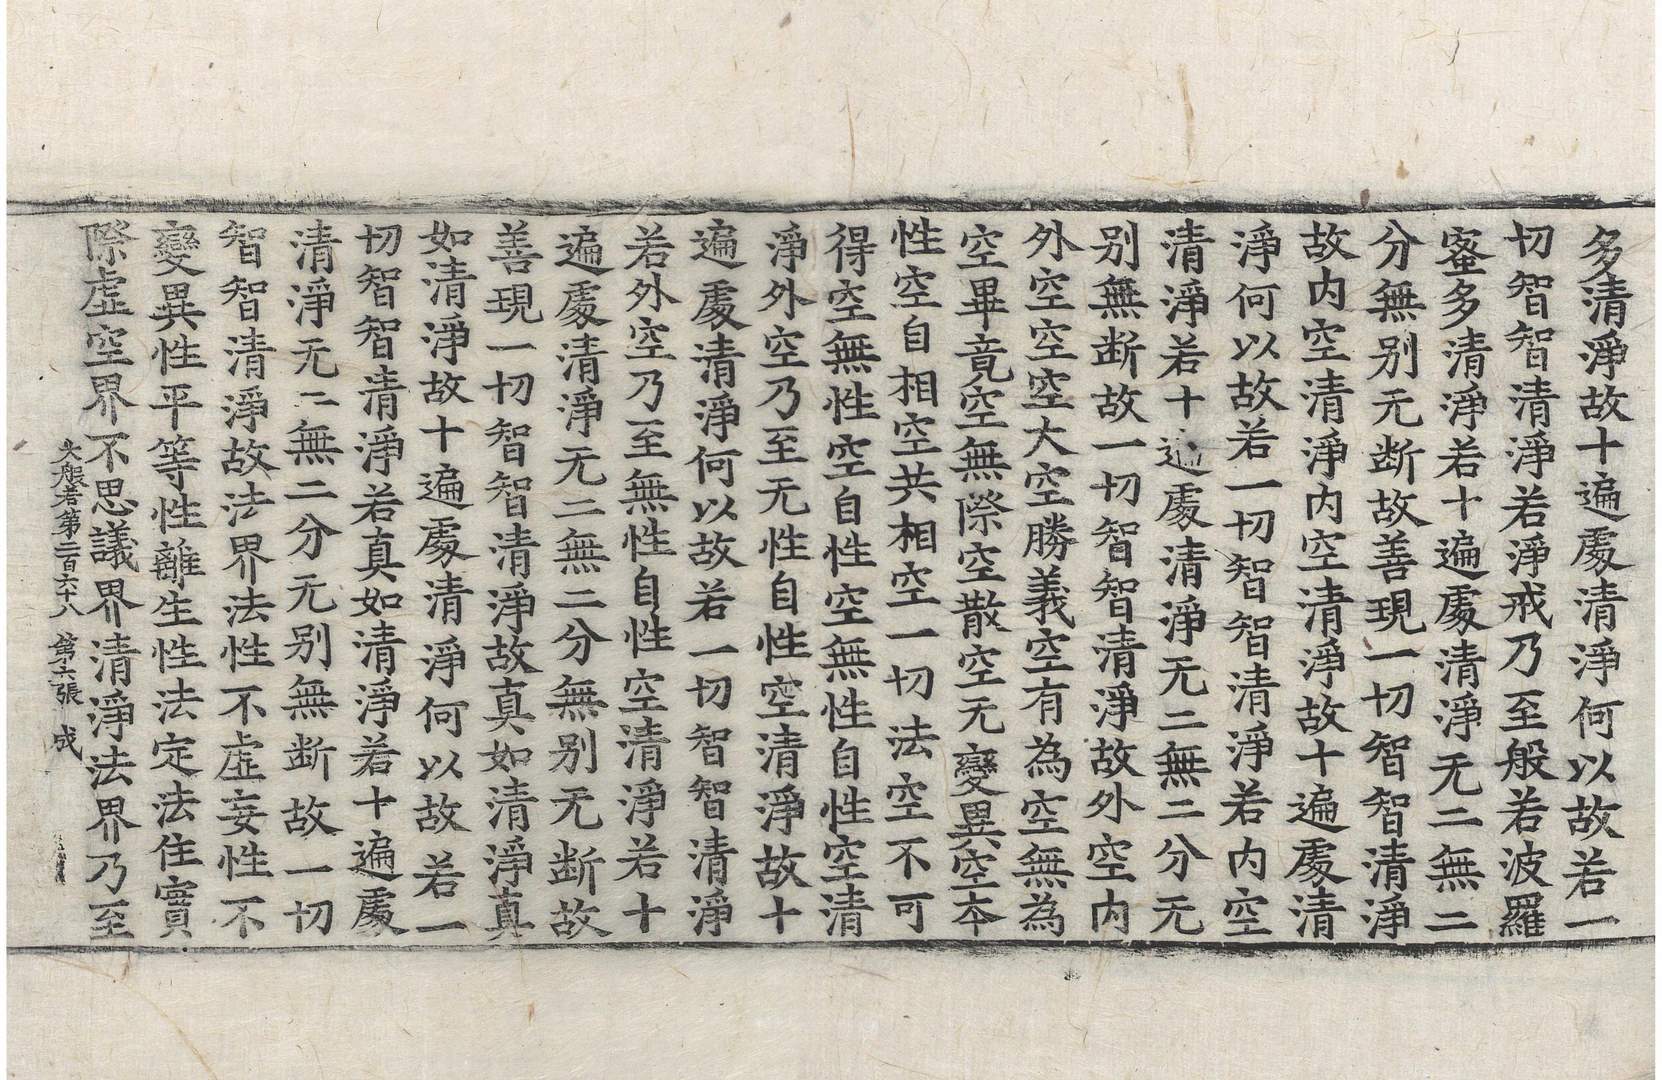 多清淨故十遍處清淨何以故若一
切智智清淨若淨戒乃至般若波羅
蜜多清淨若十遍處清淨无二無二
分無别无断故善現一切智智清淨
故内空清淨内空清淨故十遍處清
淨何以故若一切智智清淨若内空
清淨若十遍處清淨无二無二分无
别無断故一切智智清淨故外空内
外空空空大空勝義空有為空無為
空畢竟空無際空散空无變異空本
性空自相空共相空一切法空不可
得空無性空自性空無性自性空清
淨外空乃至无性自性空清淨故十
遍處清淨何以故若一切智智清淨
若外空乃至無性自性空清淨若十
遍處清淨无二無二分無别无断故
善現一切智智清淨故真如清淨真
如清淨故十遍處清淨何以故若一
切智智清淨若真如清淨若十遍處
清淨无二無二分无别無断故一切
智智清淨故法界法性不虛妄性不
變異性平等性離生性法定法住實
際虛空界不思議界清淨法界乃至
大般若第二百六十八 第六張 成